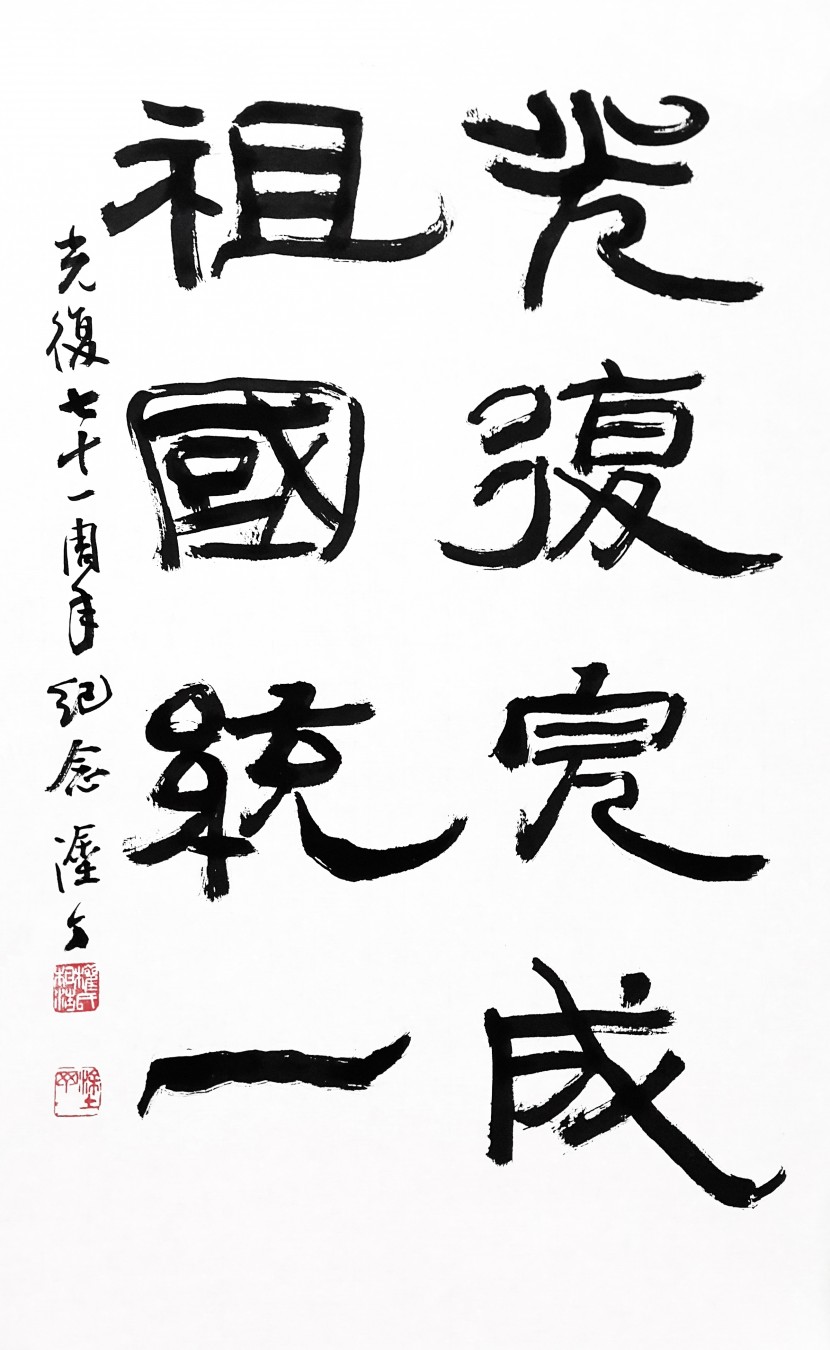 光復完成
祖國統一
光復七十一周年紀念